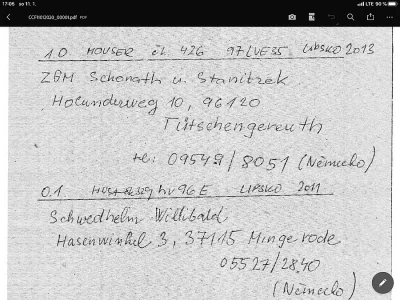 17:05 so 11. 1.
LTE 90 %
CCFN012020_00001.pdf PDF
1.0 HOUSER čl. 426 97LVE35 LIPSKO 2013
ZGM Schonath u. Stanitzek
Holunderweg 10, 96120
Tütschengereuth
tel: 09549/8051 (Německo)
0.1 HV96E LIPSKO 2011
Schwedhelm Willibald
Hasenwinkel 3, 37115 Mingerode
05527/2840
(Německo)